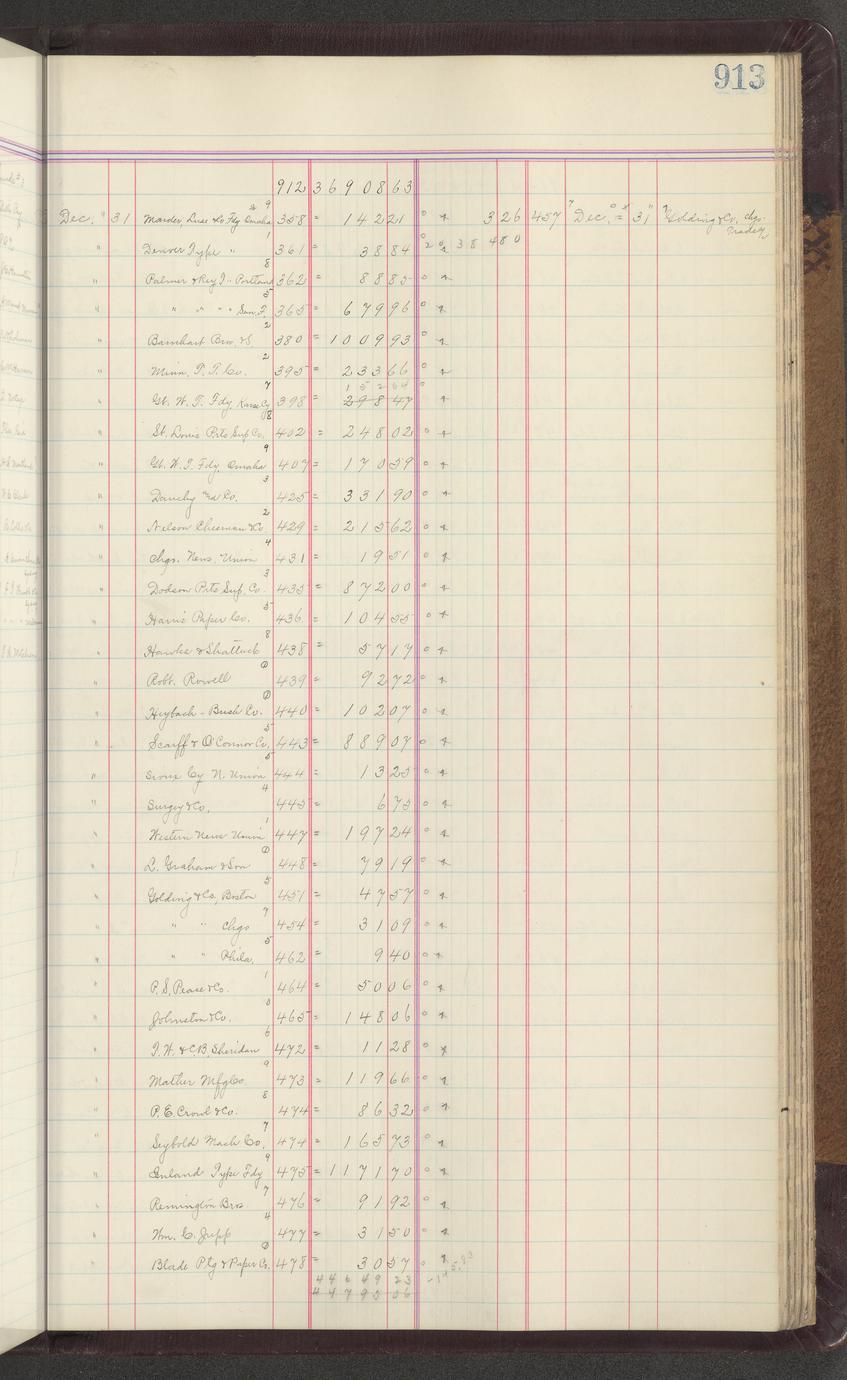 913
912 36908 63
Dec. " 31 Marder Luse & Co Fdy Omaha 9 358 = 142 21 3 26 457 Dec. 31 Golding & Co. Chgo.
" Denver Type " 1 361 = 38 84 38 480
" Palmer & Rey T " Portland 8 362 = 88 85
" " " " " San. F. 5 365 = 679 96
" Barnhart Bros. & S. 2 380 = 1009 93
" Minn. T. F. Co. 2 395 = 233 66
152 64
" Gt. W. T. Fdy, Kansas Cy 7 398 = 298 47
" St. Louis Ptrs Sup Co. 8 402 = 248 02
" Gt. W. T. Fdy. Omaha 9 407 = 170 59
" Danchy & Co. 3 425 = 331 90
" Nelson Chesman & Co 2 429 = 215 62
" Chgo. News. Union 4 431 = 19 51
" Dodson Ptrs Sup. Co. 3 435 = 872 00
" Harris Paper Co. 5 436 = 104 55
" Hawks & Shattuck 8 438 = 57 17
" Robt. Rowell 0 439 = 92 72
" Heybach - Bush Co. 0 440 = 102 07
" Scarff & O'Connor Co. 5 443 = 889 07
" Sioux Cy N. Union 5 444 = 13 25
" Surgey & Co. 4 445 = 6 75
" Western News Union 1 447 = 197 24
" L. Graham & Son 0 448 = 79 19
" Golding & Co, Boston 5 451 = 47 57
" " " Chgo 7 454 = 31 09
" " " Phila. 5 462 = 9 40
" P. S. Pease & Co. 1 464 = 50 06
" Johnston & Co. 0 465 = 148 06
" T. W. & C. B. Sheridan 6 472 = 11 28
" Mather Mfg Co. 9 473 = 119 66
" P. E. Crowl & Co. 8 474 = 86 32
" Seybold Mach Co. 7 474 = 165 73
" Inland Type Fdy 9 475 = 1171 70
" Remington Bros 7 476 = 91 92
" Wm. C. Jupp 4 477 = 31 50
" Blade Ptg & Paper Co. 0 478 = 30 57
44649 23
44795 06